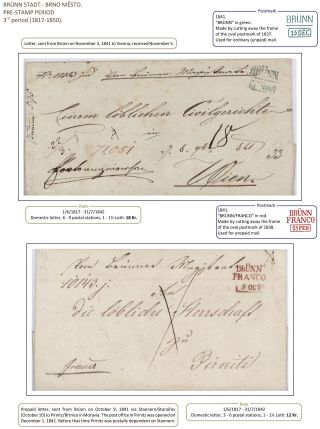 BRÜNN STADT - BRNO MĚSTO.
PRE-STAMP PERIOD
3rd period (1817-1850).
Postmark
1841.
"BRÜNN"
in green.
Made by cutting away the frame
of the oval postmark of 1837.
Used for ordinary (unpaid) mail.
BRÜNN
15 DEC
Letter, sent from Brünn on November 3, 1841 to Vienna, received November 5.
BRÜNN
Einem löblichen Civilgerichte
18
Wien
Rate
1/6/1817 - 31/7/1842
Domestic letter, 6 - 9 postal stations, 1 - 1½ Loth: 18 Kr.
Postmark
1841.
"BRÜNN/FRANCO" in red.
Made by cutting away the frame
of the oval postmark of 1838.
Used for prepaid mail.
BRÜNN
FRANCO
25 FEB
Vom Brünner Magistrate
BRÜNN
FRANCO
9 OCT
die löbliche Herrschaft
zu
Pirnitz
Prepaid letter, sent from Brünn on October 9, 1841 via Stannern/Stonařov
(October 10) to Pirnitz/Brtnice in Moravia. The post office in Pirnitz was opened on
December 1, 1841. Before that time Pirnitz was postally dependent on Stannern.
Rate
1/6/1817 - 31/7/1842
Domestic letter, 3 - 6 postal stations, 1 - 1½ Loth: 12 Kr.